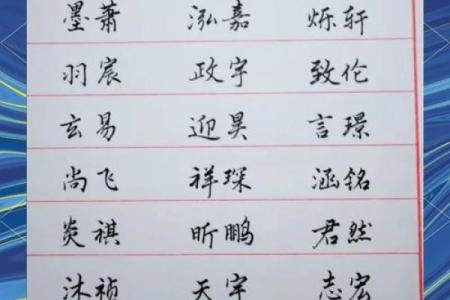 墨萧 泓嘉 烁轩
羽宸 政宇 致伦
玄易 迎昊 言璟
尚飞 祥琛 涵铭
炎祺 昕鹏 君然
沐祯 天宇 志宏